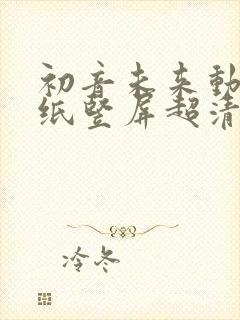 初音未来動
纸竖屏超清
冷冬